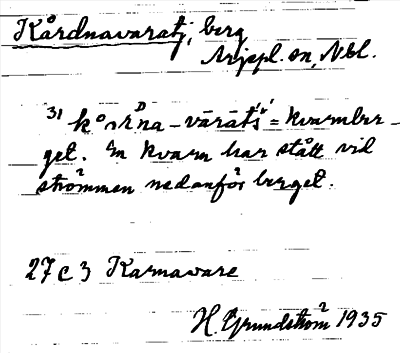 Kårdnavaratj, berg
Arjepl. sn, Nbl.
31 kå̄rDna-vārāt́ś = kvarnber-
get. En kvarn har stått vid
strömmen nedanför berget.
27 C 3 Karnavare
H. Grundström 1935